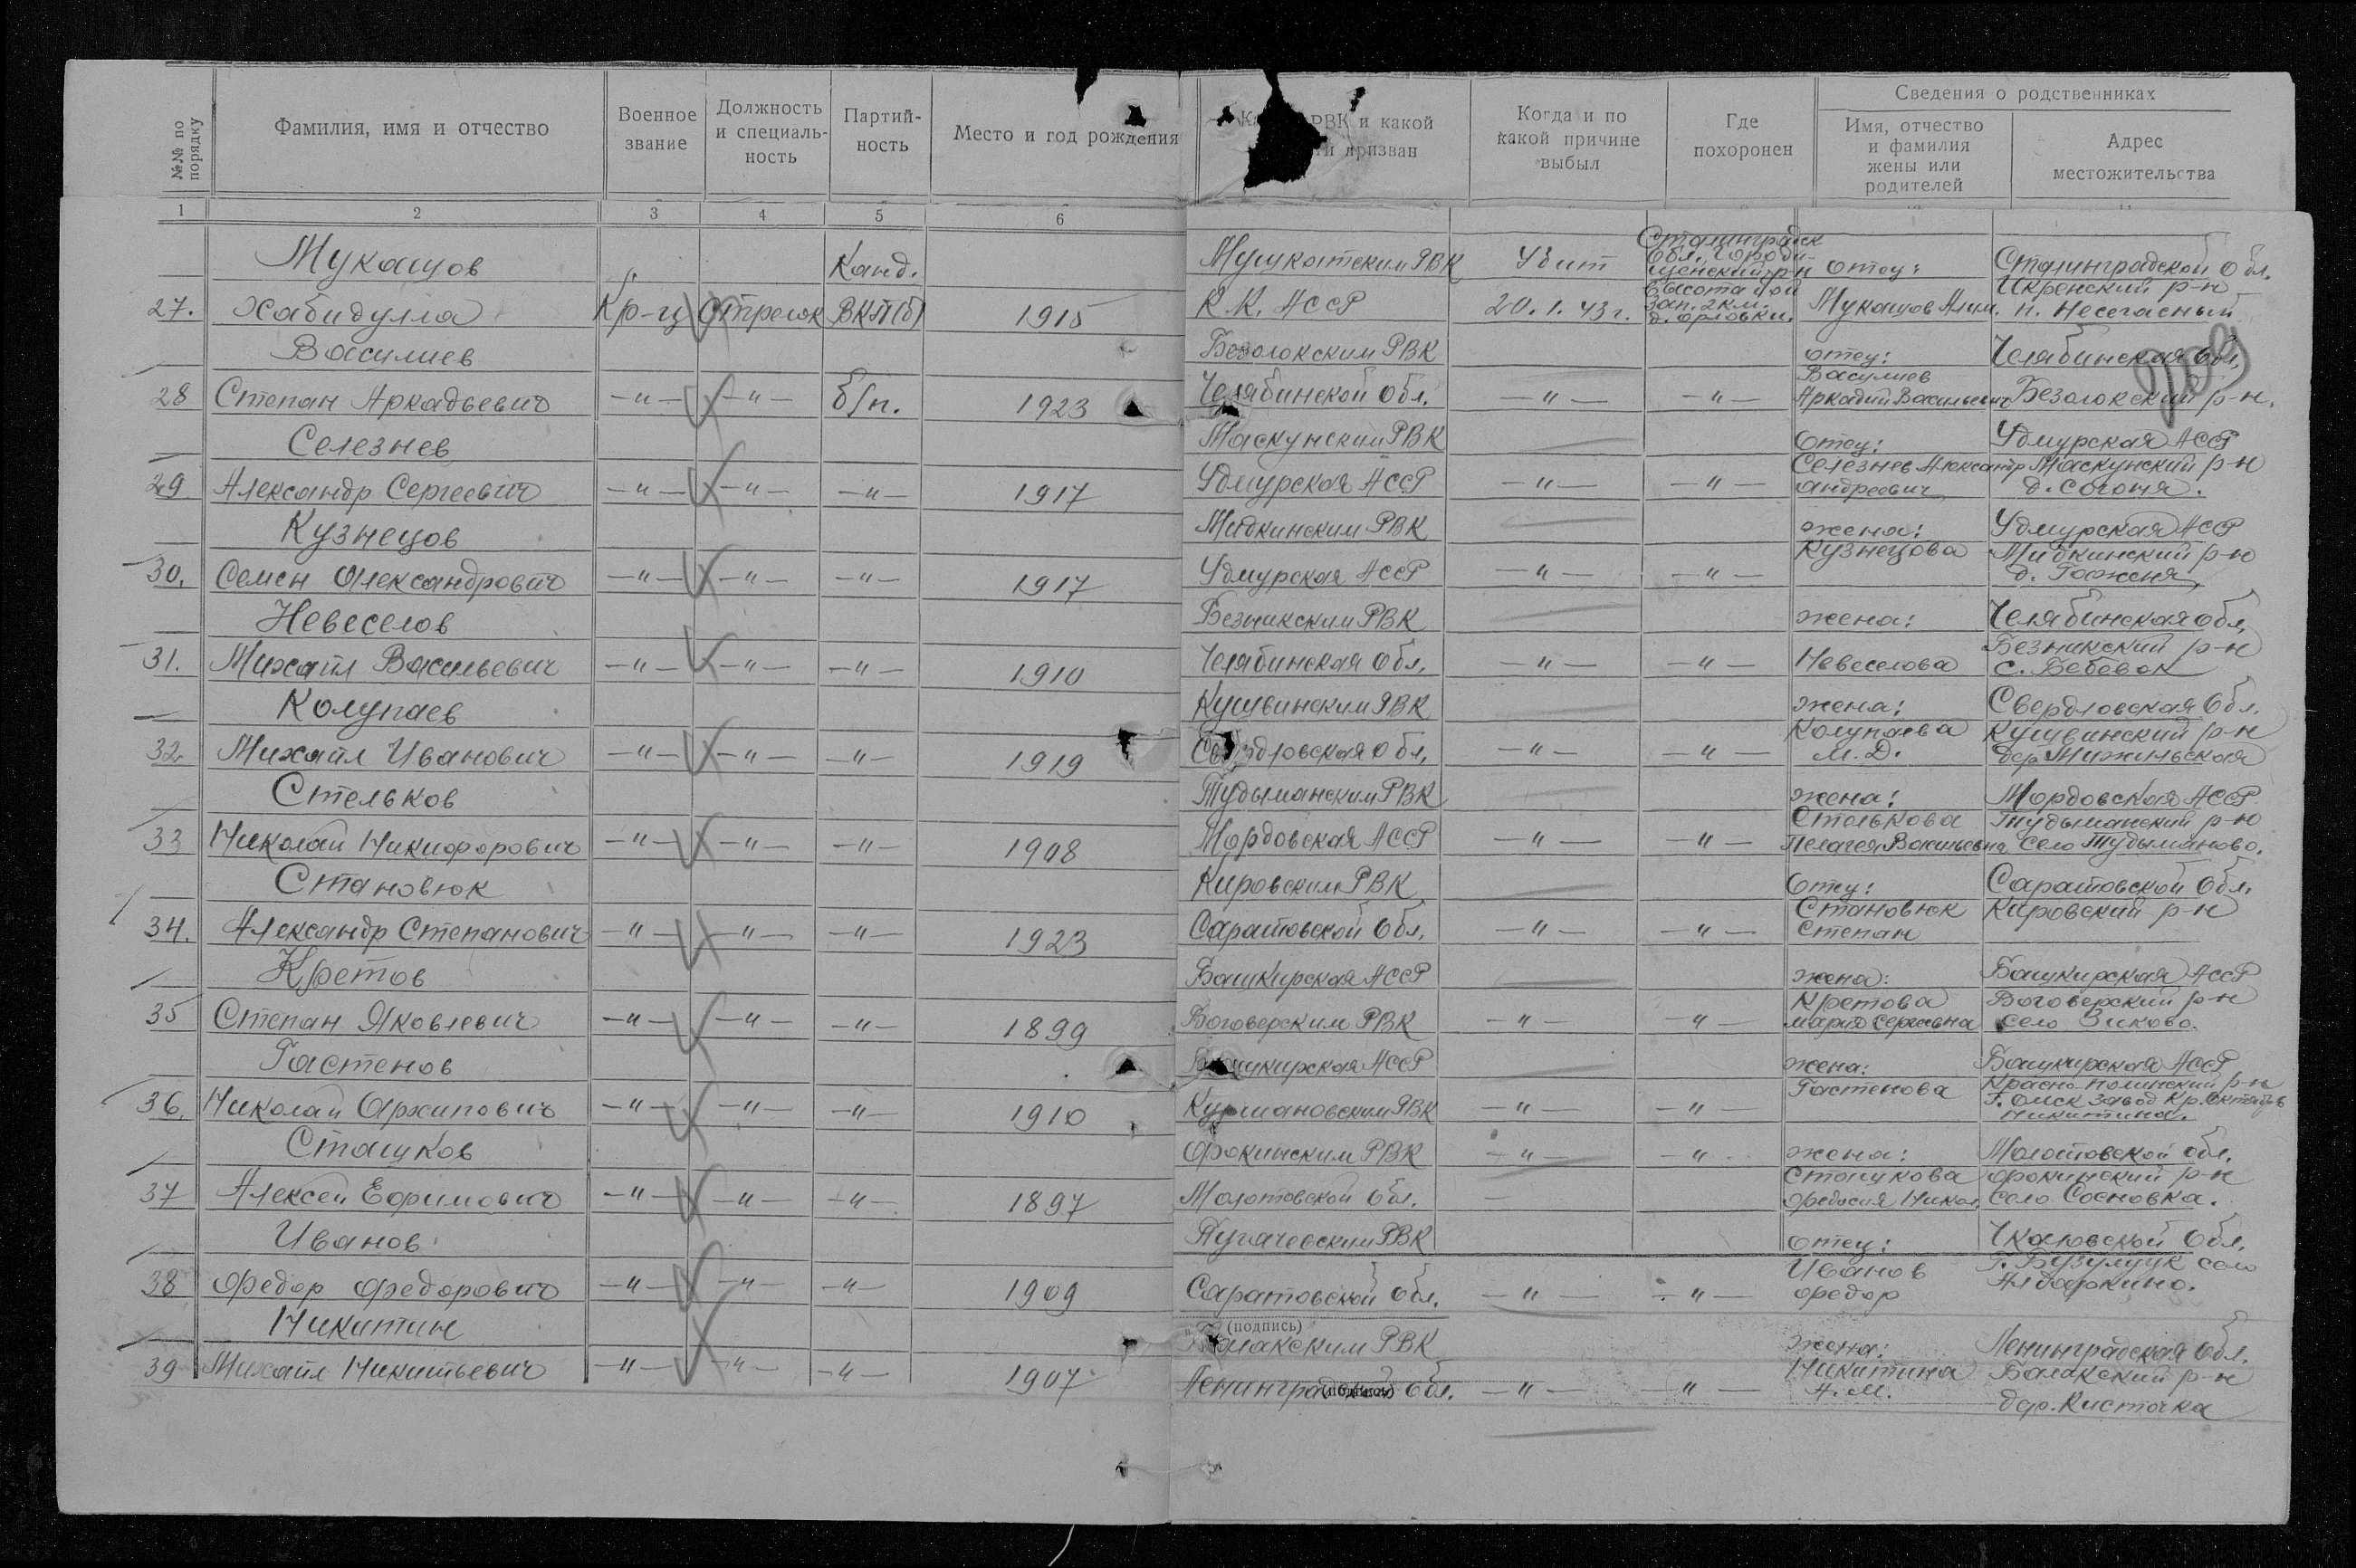 Сведения о родственниках
№№ по порядку
Фамилия, имя и отчество
Военное звание
Должность и специаль-ность
Партий-ность
Место и год рождения
РВК и какой
призван
Когда и по какой причине выбыл
Где похоронен
Имя, отчество и фамилия жены или родителей
Адрес местожительства
1 2 3 4 5 6
Мукашов Канд. РВК Убит Сталинградск Обл. Городи- отец: Сталинградской Обл.
щенский р-н р-н
27. Хабидулла Кр-ц Стрелок ВКП(б) 1915 К.К. АССР 20.1.43 г. Высота зап. 2 км. д. Орловки. Мукашов Алим. п.
Василиев Безолокским РВК отец: Челябинская Обл,
Василиев
28 Степан Аркадьевич -"- -"- б/п. 1923 Челябинской Обл. -"- -"- Аркадий Васильевич Безолокский р-н.
Селезнев РВК Отец: Удмурская АССР
Селезнев Александр р-н
29 Александр Сергеевич -"- -"- -"- 1917 Удмурская АССР -"- -"- Андреевич д.
Кузнецов РВК жена: Удмурская АССР
Кузнецова р-н
30. Семен Александрович -"- -"- -"- 1917 Удмурская АССР -"- -"- д.
Невеселов Безникским РВК жена: Челябинская обл,
Безникский р-н
31. Михаил Васильевич -"- -"- -"- 1910 Челябинская Обл, -"- -"- Невеселова с. Бебевок
Колупаев Кушвинским РВК жена: Свердловская Обл.
Колупаева Кушвинский р-н
32. Михаил Иванович -"- -"- -"- 1919 Свердловская Обл, -"- -"- М. Д. дер.
Стельков Тудыманским РВК жена: Мордовская АССР
Стелькова Тудыманский р-н
33 Николай Никифорович -"- -"- -"- 1908 Мордовская АССР -"- -"- Пелагея Васильевна село Тудыманово.
Становюк Кировским РВК Отец: Саратовской Обл.
Становюк Кировский р-н
34. Александр Степанович -"- -"- -"- 1923 Саратовской Обл, -"- -"- Степан
Кретов Башкирская АССР жена: Башкирская АССР
Кретова Воговерский р-н
35 Степан Яковлевич -"- -"- -"- 1899 Боговерским РВК -"- -"- Мария Сергеевна село Зиково.
Гастенов Башкирская АССР жена: Башкирская АССР
Гастенова р-н
36. Николай Архипович -"- -"- -"- 1910 РВК -"- -"- г. Омск завод Кр. Октябрь
Никитина.
Сташков Фокинским РВК -"- -"- жена: Молотовской обл.
Сташкова Фокинский р-н
37 Алексей Ефимович -"- -"- -"- 1897 Молотовской Обл. Федосия Никол. село Сосновка.
Иванов Пугачевским РВК отец: Чкаловской Обл.
Иванов г. Бузулук село
38 Федор Федорович -"- -"- -"- 1909 Саратовской Обл. -"- -"- Федор Алдаркино.
(подпись)
Никитин РВК жена: Ленинградская Обл.
Никитина Балакский р-н
39 Михаил Никитьевич -"- -"- -"- 1907 Ленинградской Обл. -"- -"- А. М.
(подпись)
дер. Кисточка